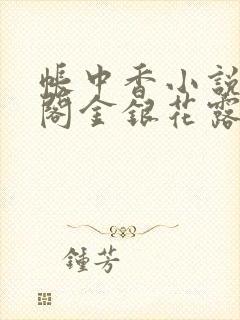 帳中香小說
閣金銀花露
鍾芳